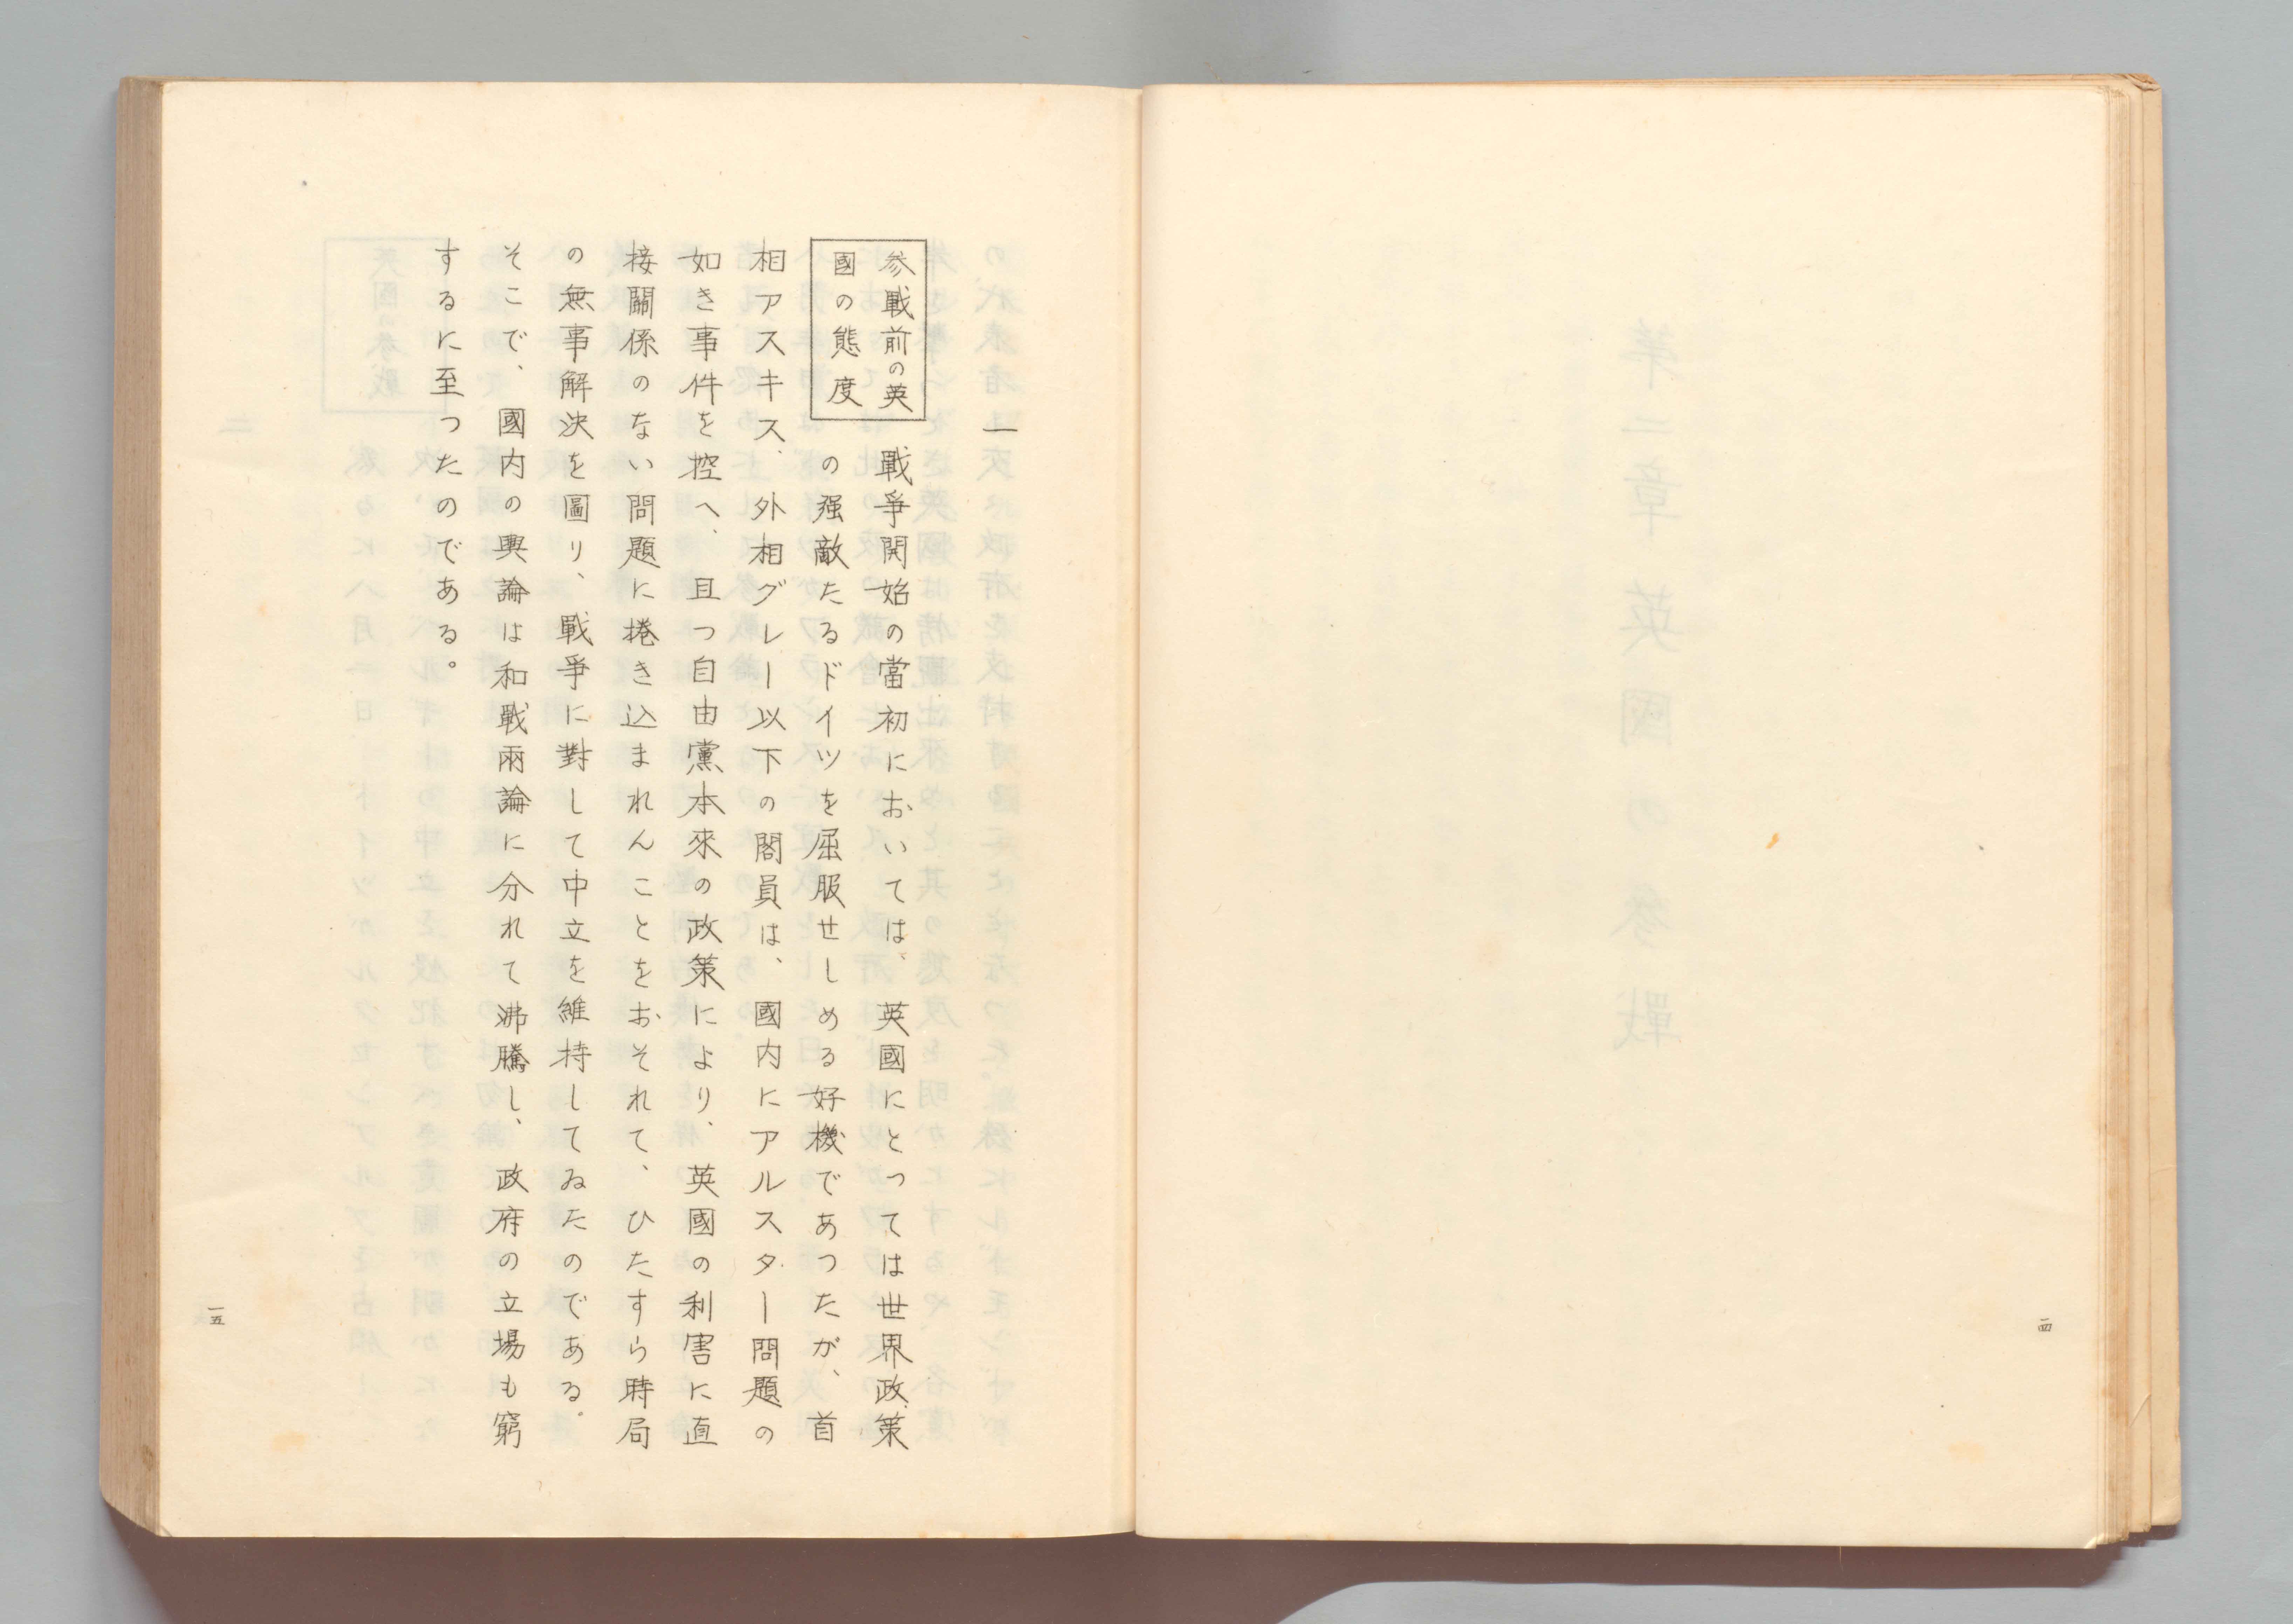 一四
一
參戰前の英
國の態度
戰爭開始の當初においては、英國にとつては世界政策
の强敵たるドイツを屈服せしめる好機であつたが、首
相アスキス、外相グレー以下の閣員は、國内にアルスター問題の
如き事件を控へ、且つ自由黨本來の政策により、英國の利害に直
接關係のない問題に捲き込まれんことをおそれて、ひたすら時局
の無事解決を圖り、戰爭に對して中立を維持してゐたのである。
そこで、國内の輿論は和戰兩論に分れて沸騰し、政府の立場も窮
するに至つたのである。
一五